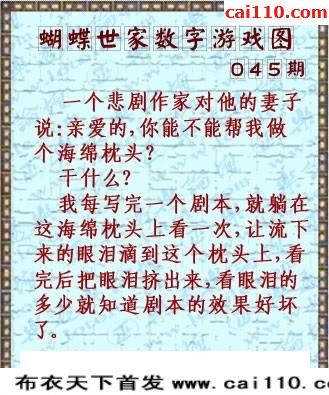 cai110.com
蝴蝶世家数字游戏图
045期
一个悲剧作家对他的妻子
说:亲爱的,你能不能帮我做
个海绵枕头?
干什么?
我每写完一个剧本,就躺在
这海绵枕头上看一次,让流下
来的眼泪滴到这个枕头上,看
完后把眼泪挤出来,看眼泪的
多少就知道剧本的效果好坏
了。
布衣天下首发 www.cai110.com